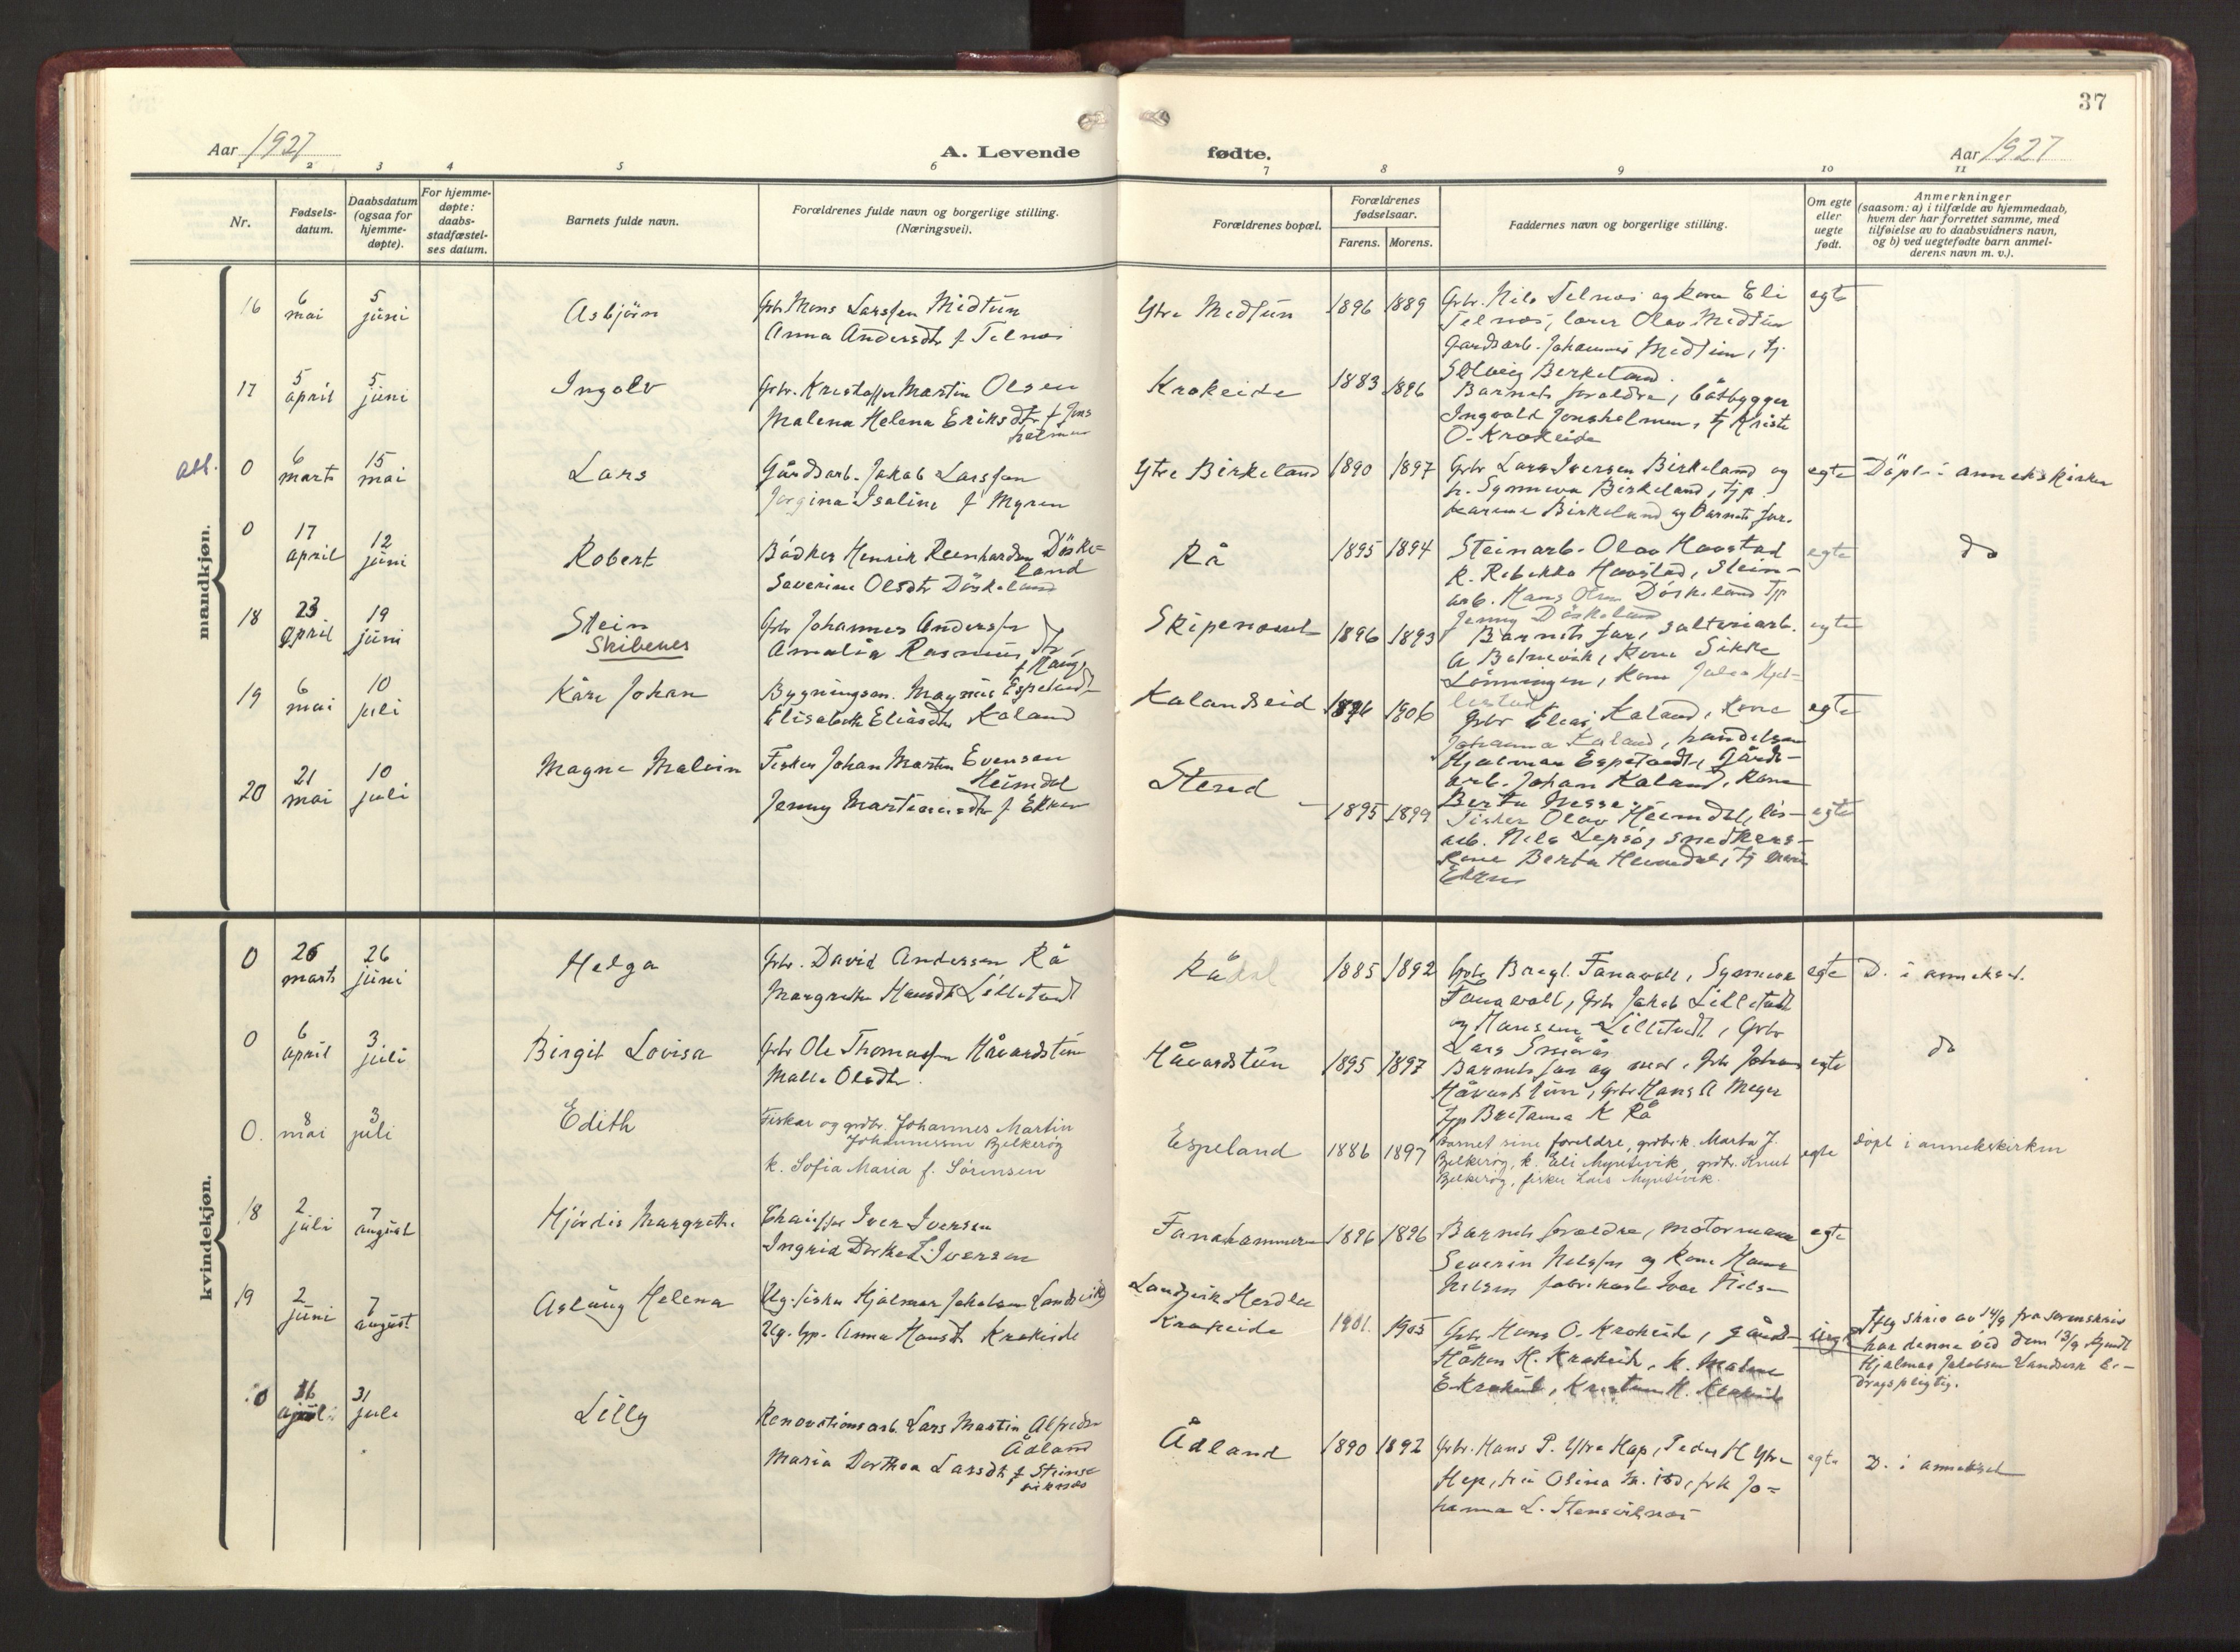 37
Aar 1927
A. Levende
fødte.
Aar 1927
1 2 3 4 5 6 7 8 9 10 11
Nr.
Fødsels-
datum.
Daabsdatum
(ogsaa for
hjemme-
døpte).
For hjemme-
døpte:
daabs-
stadfæstel-
ses datum.
Barnets fulde navn.
Forældrenes fulde navn og borgerlige stilling.
(Næringsvei).
Forældrenes bopæl.
Forældrenes
fødselsaar.
Farens. Morens.
Faddernes navn og borgerlige stilling.
Om egte
eller
uegte
født.
Anmerkninger
(saasom: a) i tilfælde av hjemmedaab,
hvem der har forrettet samme, med
tilføielse av to daabsvidners navn,
og b) ved uegtefødte barn anmel-
derens navn m. v.).
mandkjøn.
16
6
mai
5
juni
Asbjörn
Gbr Mons Larssen Midtun
Anna Andersdtr f Telnes
Ytre Midtun
1896 1889
Gbr. Nils Telnes og kone Eli
Telnes, lærer Olav Midtun
Gardsarb. Johannes Midtun, tj.
Solveig Birkeland.
egte
17
5
april
5
juni
Ingolv
Gbr. Kristoffer Martin Olsen
Malena Helena Eriksdtr f Jons
holmen
Krokeide
1883 1896
Barnets foreldre, båtbygger
Ingvald Jonsholmen, tj Kristi
O. Krokeide
0
6
marts
15
mai
Lars
Gårdsarb. Jakob Larssen
Jorgina Isaline f Myren
Ytre Birkeland
1890 1897
Gbr Lars Iversen Birkeland og
k. Synneva Birkeland, tjp.
Karene Birkeland og Barnets far.
egte
Döpt i annekskirken
0
17
april
12
juni
Robert
Bödker Henrik Reinhardsen Döske-
land
Severine Olsdtr Döskeland
Rå
1895 1894
Steinarb. Olav Havstad
k. Rebekka Havstad, Stein-
arb. Hans Olsen Döskeland tjp
Jenny Döskeland
egte
do
18
23
april
19
juni
Stein
Skibenes
Gbr Johannes Anderssen
Amalia Rasmusdtr
f Haug
Skipeneset
1896 1893
Barnets far, salteriarb.
A Kone Sikke
Lönningen, kone
egte
19
6
mai
10
juli
Kåre Johan
Bygningssn. Magnus Espeland
Elisabeth Eliasdtr Kaland
Kalandseid
1896 1906
Gbr Elias Kaland, kone
Johanna Kaland, handelsm
Hjalmar Espeland, Gårds-
arb. Johan Kaland, kone
Berta Nesse.
egte
20
21
mai
10
juli
Magne Malvin
Fisker Johan Martin Evensen
Heimdal
Jenny Martinusdtr f Ekren
Stend
1895 1899
Fisker Olav Heimdal, lös-
arb. Nils Lepsø, snedkers-
kone Berta Heimdal, tj
Ekren
egte
kvindekjøn.
0
26
marts
26
juni
Helga
Gbr. David Andersen Rå
Margretha Hansdtr Lilletvedt
Rådal
1885 1892
Gbr Fanavoll, Synneva
Fanavoll, Gbr Jakob Lilletvedt
og Hansine Lilletvedt, Gbr
Lars Smörås
egte
D. i annekset.
0
6
april
3
juli
Birgit Lovisa
Gbr Ole Thomassen Håvardstun
Malla Olsdtr.
Håvardstun
1895 1897
Barnets far og mor, Gbr Johan
Håvardstun, Gbr Hans A Meyer
tjp Bretanna K Rå
egte
do
0.
8
mai
3
juli
Edith
Fisker og grdbr. Johannes Martin
Johannessen Bjelkerøy
k. Sofia Maria f. Sörensen
Espeland
1886 1897
Barnet sine foreldre, grdbr.k. Marta J.
Bjelkerøy, k. Eli Myntevik, grdbr. Knut
Bjelkerøy, fisker Lars Myntevik.
egte
Döpt i annekskirken
18
2
juli
7
august
Hjördis Margrethe
Chauffør Iver Iversen
Ingrid Dorthea Iversen
Fanahammeren
1896 1896
Barnets foreldre, motormann
Severin Nelssen og kone Hanna
Nelsen fabrikarb Ivar Nielsen
egte
19
2
juni
7
august
Aslaug Helena
Ug. fisker Hjalmar Jakobsen Landsvik
Ug. tjp. Anna Hansdtr Krokeide
Landsvik Herdla
Krokeide
1901. 1905
Gbr Hans O. Krokeide, gårds-
Håkon H. Krokeide, k. Malene
E Krokeide, Kristian H. Krokeide
uegte
Iflg skriv av 14/9 fra sorenskriv
har denne ved dom 13/9 kjendt
Hjalmar Jakobsen Landsvik bi-
dragspligtig.
0
16
april
31
juli
Lilly
Renovationsarb. Lars Martin Alfredsen
Ådland
Maria Dorthea Larsdtr f Steins-
viknes
Ådland
1890 1892
Gbr. Hans P. Ytre Hop, Peder H Ytre
Hop, fru Olina , frk Jo-
hanna L. Stensviknes
egte
D. i annekset